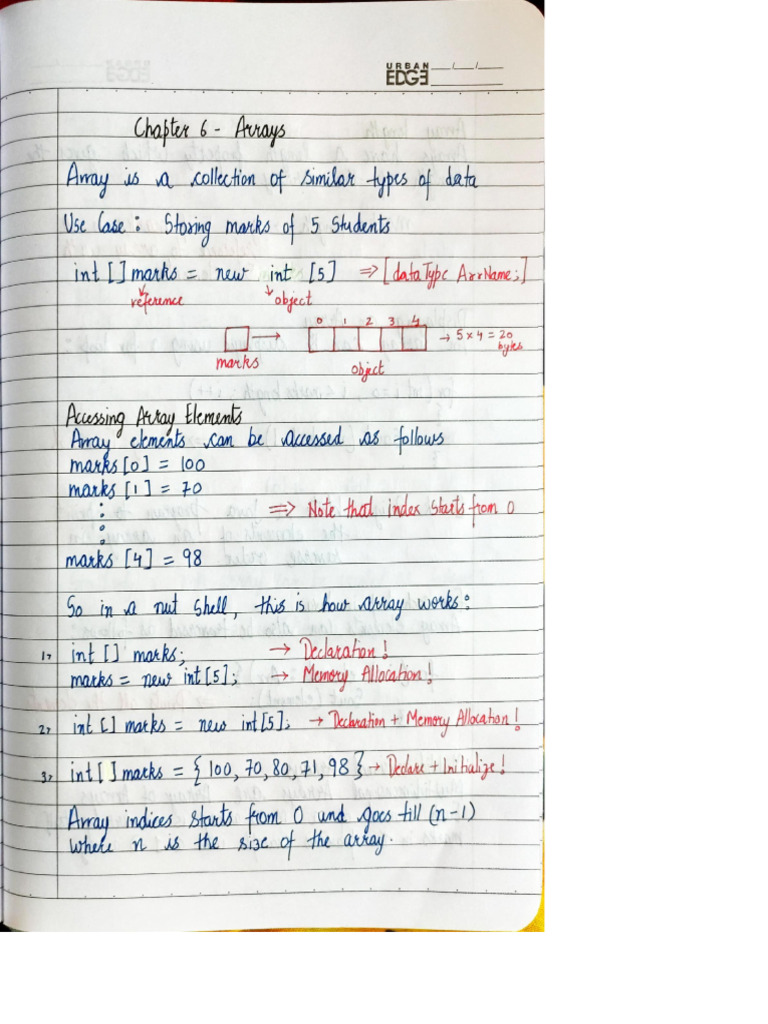 URBAN
EDGE
Chapter 6 - Arrays
Array is a collection of similar types of data
Use Case: Storing marks of 5 Students
int [] marks = new int [5] ⇒ [dataType ArrName;]
reference object
0 1 2 3 4
→ 5 x 4 = 20 bytes
marks object
Accessing Array Elements
Array elements can be accessed as follows
marks [0] = 100
marks [1] = 70
⇒ Note that index starts from 0
marks [4] = 98
So in a nut shell, this is how array works:
1> int [] marks; → Declaration!
marks = new int[5]; → Memory Allocation!
2> int [] marks = new int[5]; → Declaration + Memory Allocation!
3> int [] marks = {100, 70, 80, 71, 98} → Declare + Initialize!
Array indices starts from 0 und goes till (n-1)
where n is the size of the array.